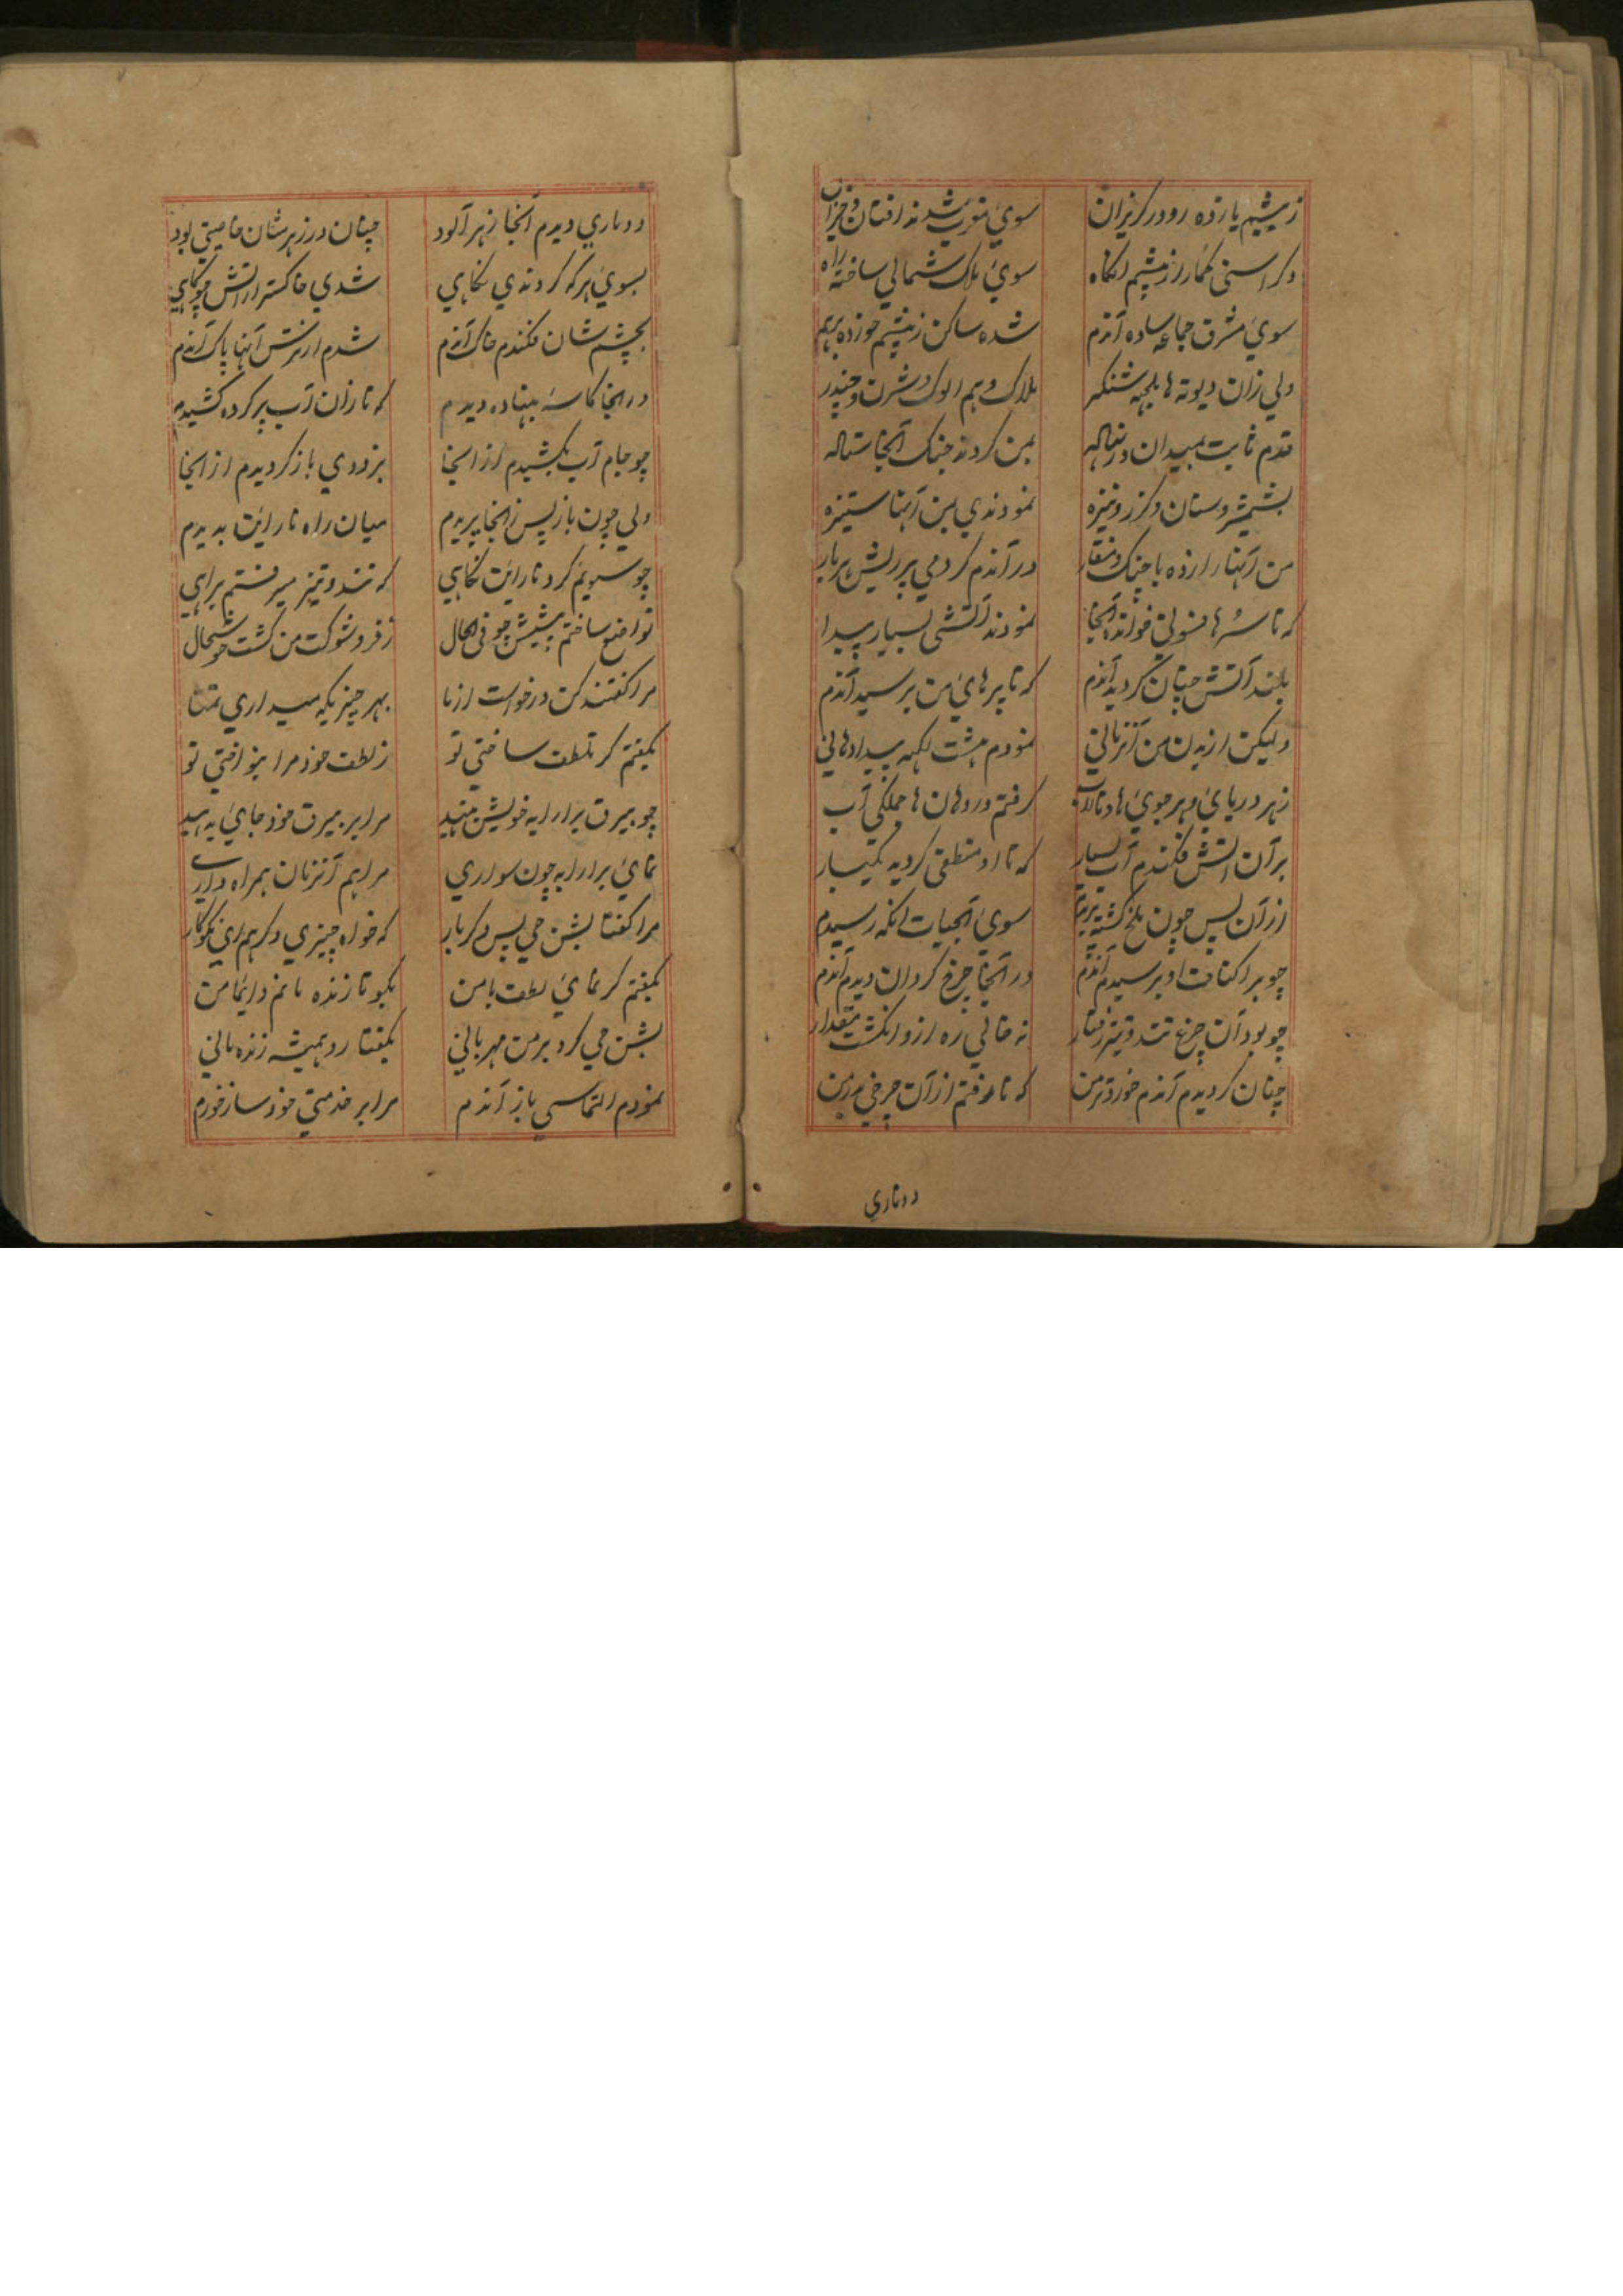 ز پیشم یازده رودر کریزان سوی مغرب شدند افتان و خیزان
دکر اسنی کمارر ز پیشم ناکاه سوی ملک شمالی ساخته راه
سوی مشرق جماعه ساده آندم شده ساکن ز پیشم خورده برهم
ولی زان دیوته ها بلجهه شنکر بلاک و هم الوک و شرن و چندر
قدم ثابت بمیدان در بمن کردند جنک آنجا سناله
بشمشیر و سنان و کرز و نیزه نمودندی بمن آنها ستیزه
من آنها را زده با چنک و منقار در آندم کردمی پر ریش هر بار
که تا سرها آنجا نمودند آتشی بسیار پیدا
بلند آتش چنان کردید آندم که تا پرهای من برسید آندم
ولیکن از بدن من آنزمانی نمودم هشت لکهه پیدا دهانی
ز هر دریای و هر جوی ها و تالاب کرفتم در دهان ها جملکی آب
بر آن آتش فکندم آب بسیار که تا او منطفی کردید یکبار
از آن پس چون ملخ کشته سوی آبحیات انکه رسیدم
چو بر اکنافت او برسیدم آندم در آنجا چرخ کردان دیدم آندم
چو بود آن چرخ تند و تیز رفتار نه خالی ره ازو انکشت مقدار
چنان کردیدم آندم خوردتر من که تا رفتم از آن چرخی
دوماری
دوماری دیدم آنجا زهر آلود چنان در زهرشان خاصیتی بود
بسوی هر که کردندی نکاهی شدی خاکستر از آتش چو کاهی
بچشم شان فکندم خاک آندم شدم از آنها پاک آندم
در آنجا کاسه بنهاده دیدم که تا زان آب پر کرده کشیدم
چو جام آب بکشیدم از آنجا بزودی باز کردیدم از آنجا
ولی چون باز پس ز آنجا پریدم میان راه نارائن بدیدم
چو سویم کرد نارائن نکاهی که تند و تیز میرفتم براهی
تواضع ساختم پیشش چو فی الحال ز فر و شوکت من کشت خوشحال
مرا کفتند کن درخواست از ما بهر چیزیکه میداری تمنا
بکفتم کر تلطف ساختی تو ز لطف خود مرا بنواختی تو
چو بیرق برارابه خویش بنهید مرا بر بیرق خود جای بدهید
نمای برارابه چون سواری مرا هم آنزمان همراه داری
مرا کفتا بشن جی پس دکربار که خواه چیزی دکر هم ای نکوکار
بکفتم کر نمای لطف با من بکو تا زنده مانم دائما من
بشن جی کرد بر من مهربانی بکفتا رو همیشه زنده مانی
نمودم التماسی باز آندم مرا بر خدمتی خود ساز خورم